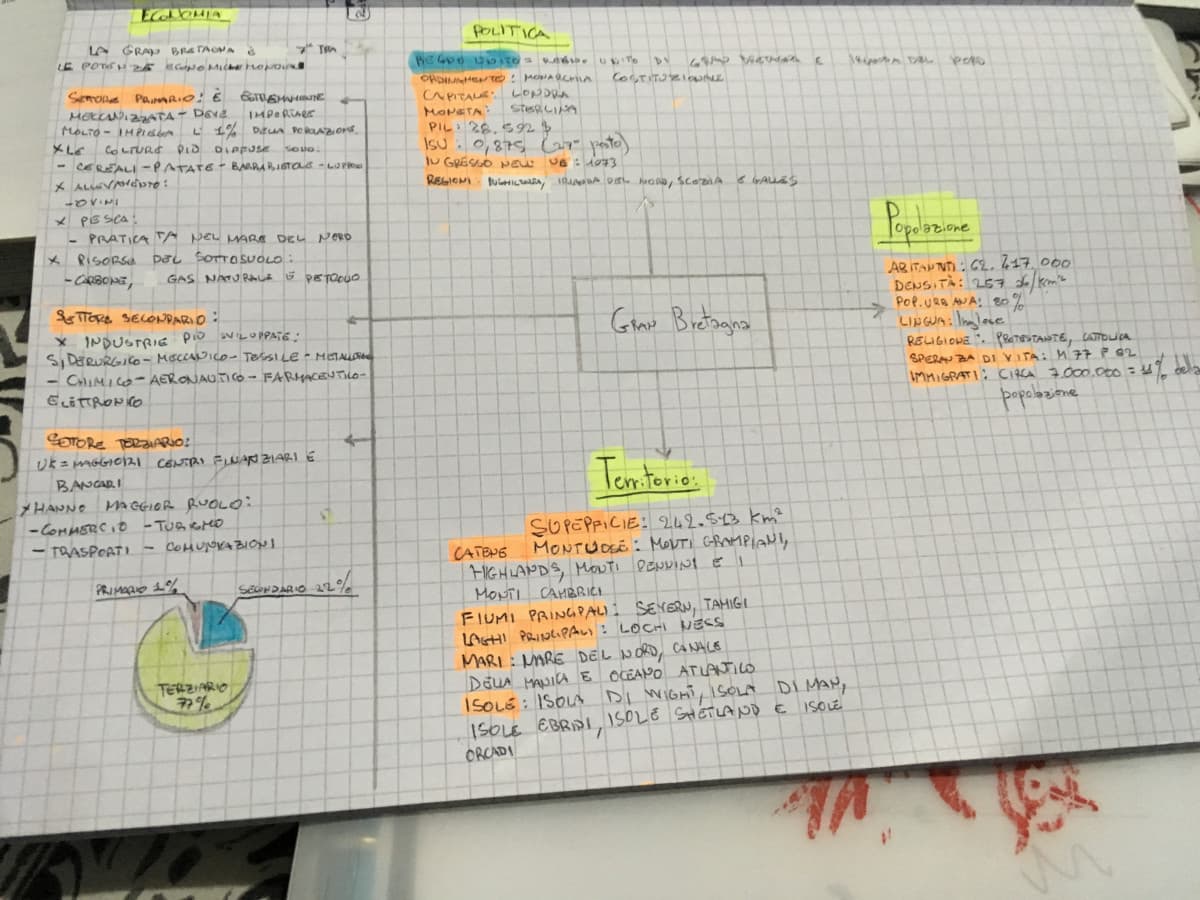 ECONOMIA
LA GRAN BRETAGNA È 7ª TRA
LE POTENZE ECONOMICHE MONDIALI
SETTORE PRIMARIO: È ESTREMAMENTE
MECCANIZZATA - DEVE IMPORTARE
MOLTO - IMPIEGA L'1% DELLA POPOLAZIONE.
x LE COLTURE PIÙ DIFFUSE SONO:
- CEREALI - PATATE - BARBABIETOLE - LUPPOLO
x ALLEVAMENTO:
- OVINI
x PESCA:
- PRATICATA NEL MARE DEL NORD
x RISORSA DEL SOTTOSUOLO:
- CARBONE, GAS NATURALE E PETROLIO
SETTORE SECONDARIO:
x INDUSTRIE PIÙ SVILUPPATE:
SIDERURGICO - MECCANICO - TESSILE -
- CHIMICO - AERONAUTICO - FARMACEUTICO -
ELETTRONICO
SETTORE TERZIARIO:
UK = MAGGIORI CENTRI FINANZIARI E
BANCARI
x HANNO MAGGIOR RUOLO:
- COMMERCIO - TURISMO
- TRASPORTI - COMUNICAZIONI
PRIMARIO 1%
SECONDARIO 22%
TERZIARIO
77%
POLITICA
REGNO UNITO = REGNO UNITO DI GRAN BRETAGNA E IRLANDA DEL NORD
ORDINAMENTO: MONARCHIA COSTITUZIONALE
CAPITALE: LONDRA
MONETA: STERLINA
PIL: 38.592 $
ISU: 0,875 (27° posto)
INGRESSO NELL' UE: 1973
REGIONI: INGHILTERRA, IRLANDA DEL NORD, SCOZIA E GALLES
GRAN Bretagna
Popolazione
ABITANTI: 62.417.000
DENSITÀ: 257 ab/km²
POP. URBANA: 80%
LINGUA: Inglese
RELIGIONE: PROTESTANTE, CATTOLICA
SPERANZA DI VITA: M 77 F 82
IMMIGRATI: CIRCA 7.000.000 = 11% della
popolazione
Territorio:
SUPERFICIE: 242.513 km²
CATENE MONTUOSE: MONTI GRAMPIANI,
HIGHLANDS, MONTI PENNINI E I
MONTI CAMBRICI
FIUMI PRINCIPALI: SEVERN, TAMIGI
LAGHI PRINCIPALI: LOCH NESS
MARI: MARE DEL NORD, CANALE
DELLA MANICA E OCEANO ATLANTICO
ISOLE: ISOLA DI WIGHT, ISOLA DI MAN,
ISOLE EBRIDI, ISOLE SHETLAND E ISOLE
ORCADI